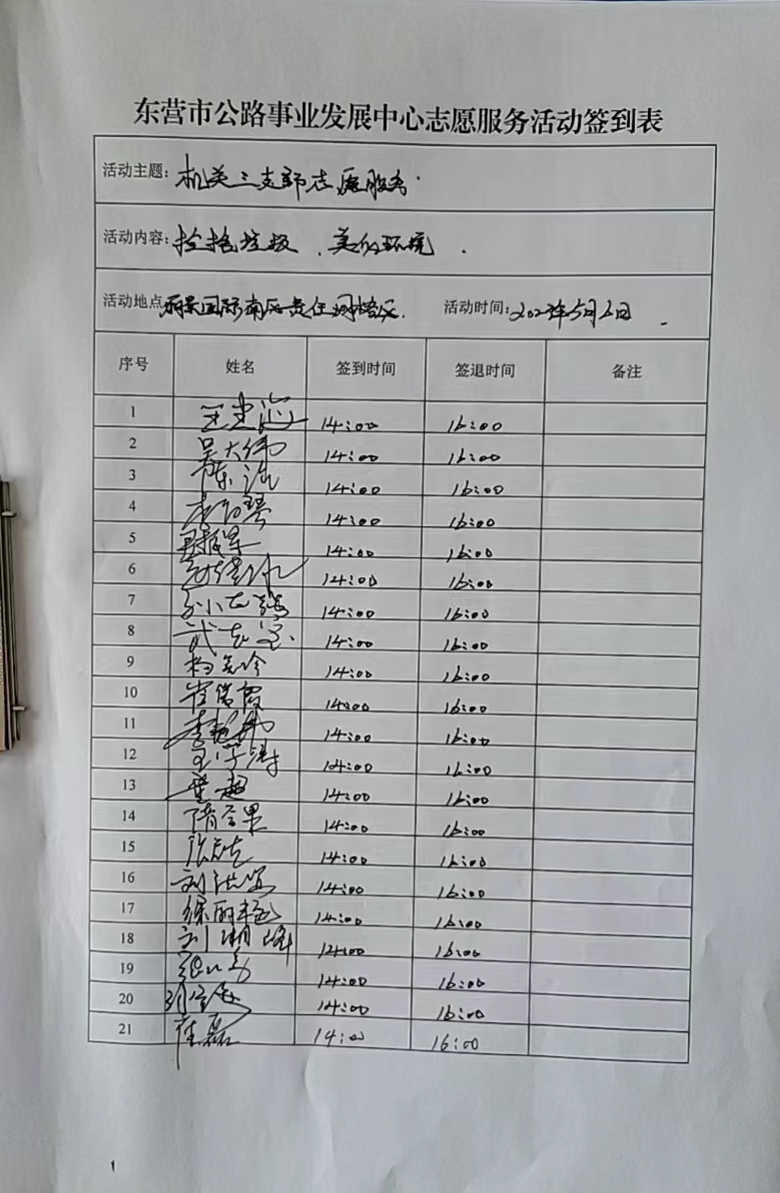 东营市公路事业发展中心志愿服务活动签到表
活动主题: 机关三支部志愿服务.
活动内容: 捡拾垃圾、美化环境.
活动地点 丽景国际南区责任网格区. 活动时间: 2023年5月6日.
序号 姓名 签到时间 签退时间 备注
1 王建海 14:00 16:00
2 吴大伟 14:00 16:00
3 陈 14:00 16:00
4 14:00 16:00
5 14:00 16:00
6 14:00 16:00
7 14:00 16:00
8 武 14:00 16:00
9 杨 14:00 16:00
10 崔 霞 14:00 16:00
11 李 14:00 16:00
12 王学涛 14:00 16:00
13 董超 14:00 16:00
14 隋 果 14:00 16:00
15 张 14:00 16:00
16 刘洪 14:00 16:00
17 徐丽艳 14:00 16:00
18 刘湘峰 14:00 16:00
19 14:00 16:00
20 14:00 16:00
21 崔磊 14:00 16:00
1